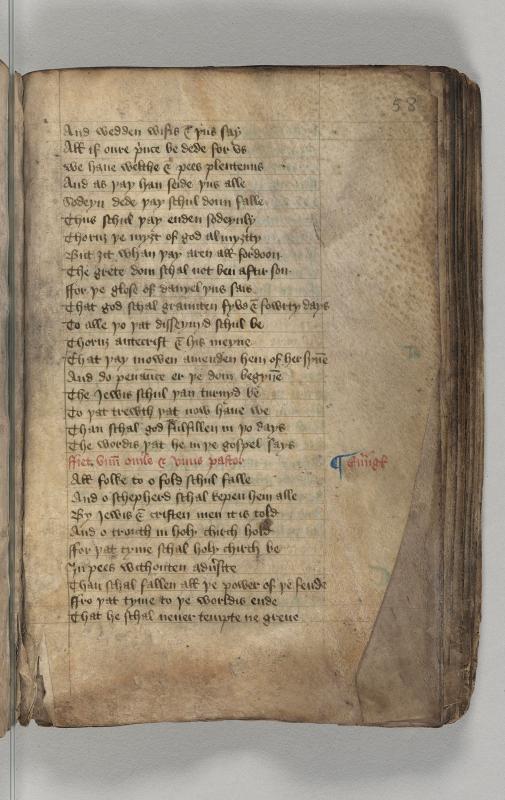 58
And wedden wifis & þus say
All if oure p̾nce be dede for vs
We haue welthe & pees plenteuus
And as þay han seide þus alle
Sodeyn dede þay schul doun falle
Thus schul þay enden sodeynly
Thoruȝ þe myȝt of god almyȝtty
But ȝit whan þay aren all fordoon
The grete dom schal not ben aftir son
ffor þe glose of danyel þus sais
That god schal graunten fyve & fowrty days
To alle þo þat disseyuyd schul be
Thoruȝ antecrist & his meyne
That þay mowen amenden hem of her synē
And do penaūce er þe dom begynē
The Jewis schul þan turnyd be
To þat trewth þat now haue we
Than schal god fulfillen in þo days
The wordis þat he in þe gospel says
ffiet vnū ouile & vnus pastor
All folke to o fold schul falle
And o schepherd schal kepen hem alle
By Jewis & cristen men it is told
And o trouth in holy chirch hold
ffor þat tyme schal holy chirch be
In pees withouten
Than schal fallen all þe power of þe fende
ffro þat tyme to þe worldis ende
That he schal neuer tempte ne greue